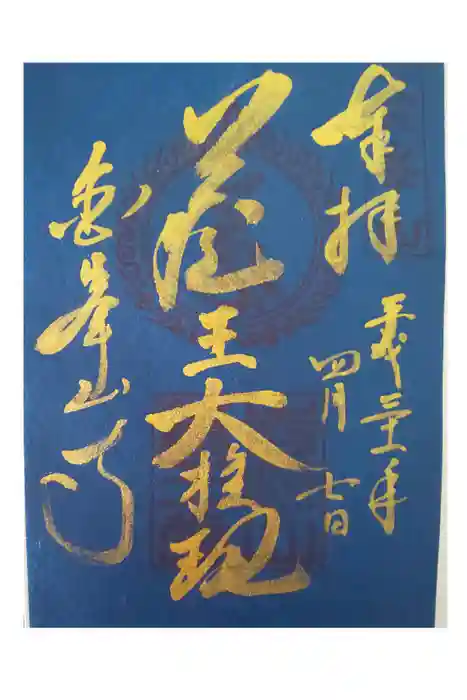 奉拝
平成年
四月七日
蔵王大権現
金峯山寺